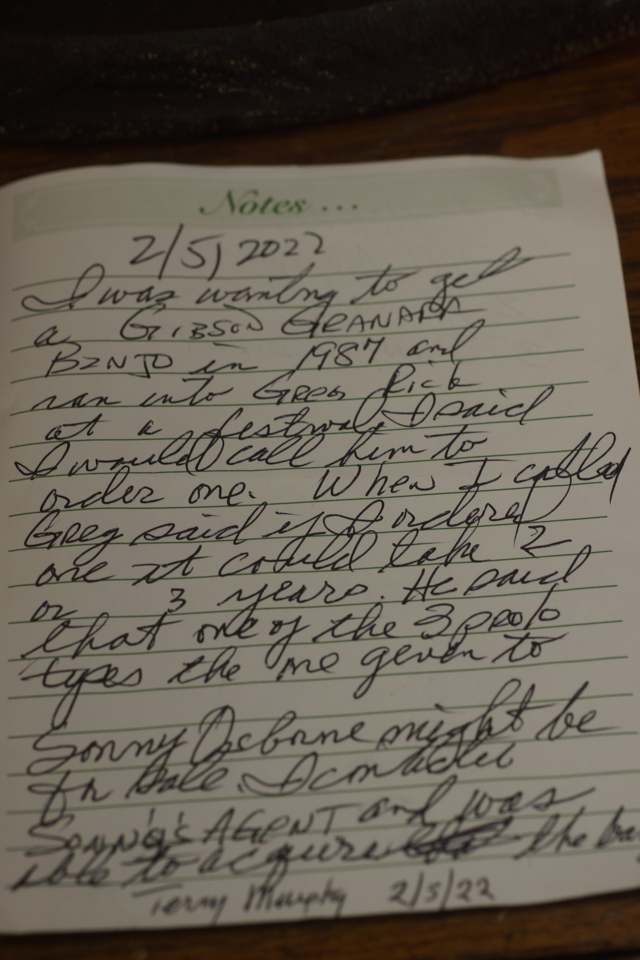 Notes ...
2/5/2022
I was wanting to get
a GIBSON GRANADA
BANJO in 1987 and
ran into Greg Rich
at a festival, I said
I would call him to
order one. When I called
Greg said if I ordered
one it could take 2
or 3 years. He said
that one of the 3 proto
types the one given to
Sonny Osborne might be
for sale. I contacted
SONNY'S AGENT and was
able to acquire the
Terry Murphy 2/5/22